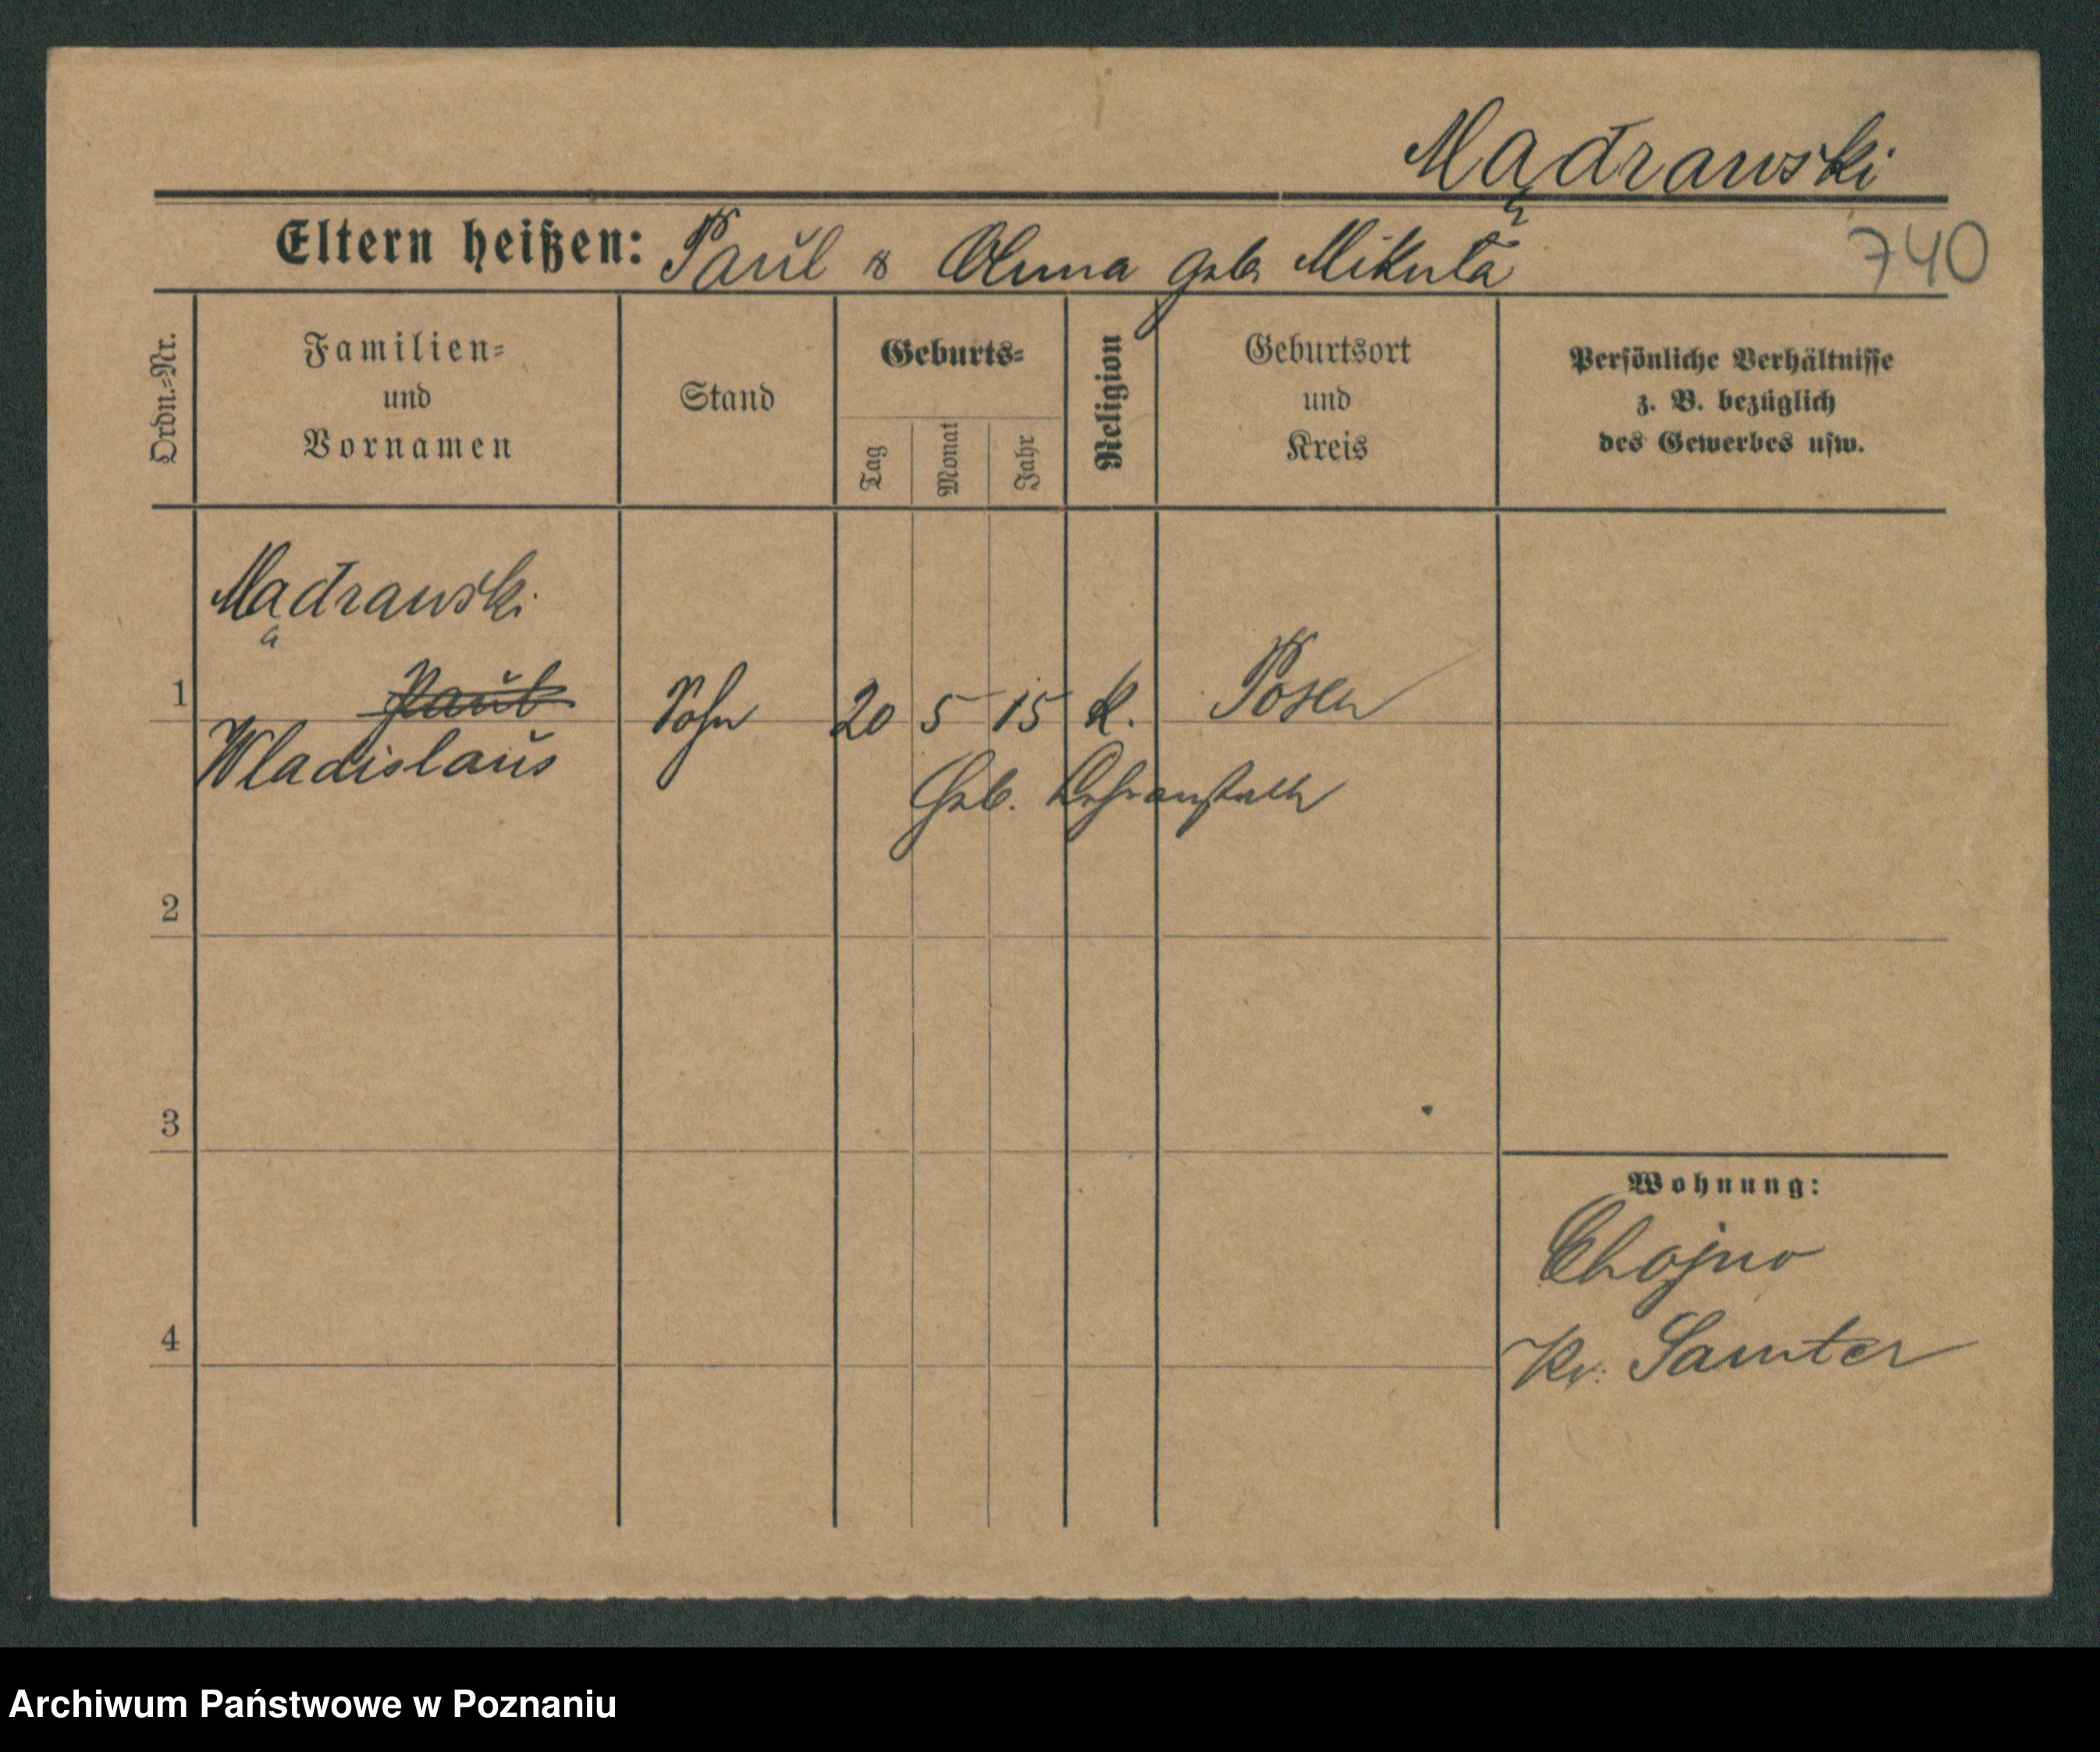 Mądrawski
Eltern heißen: Paul & Anna geb. Mikuła
740
Ordn.-Nr.
Familien-
und
Vornamen
Stand
Geburts-
Tag
Monat
Jahr
Religion
Geburtsort
und
Kreis
Persönliche Verhältnisse
z. B. bezüglich
des Gewerbes usw.
Mądrawski
1 Paul Sohn 20 5 15 k. Posen
Wladislaus
Geb.
2
3
4
Wohnung:
Chojno
Kr. Samter
Archiwum Państwowe w Poznaniu